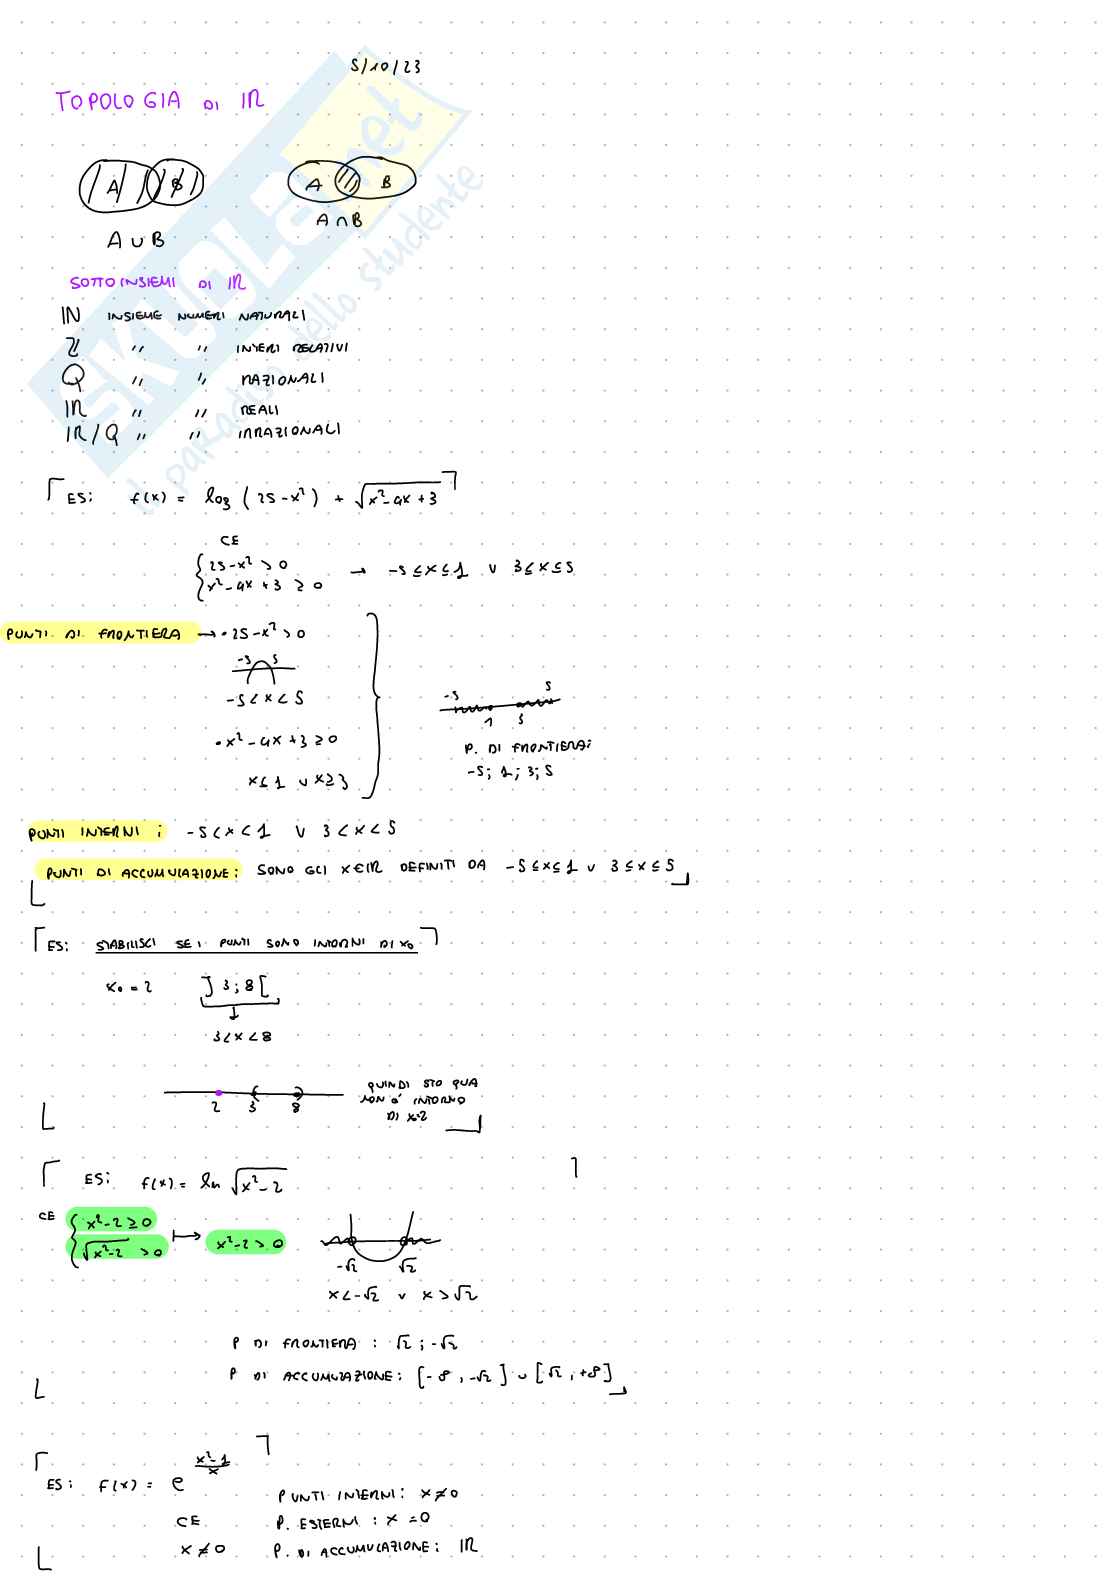 5/10/23
TOPOLOGIA DI IR
A B
A ∪ B
A B
A ∩ B
SOTTOINSIEMI DI IR
IN INSIEME NUMERI NATURALI
Z " " INTERI RELATIVI
Q " " RAZIONALI
IR " " REALI
IR/Q " " IRRAZIONALI
ES: f(x) = log (25-x²) + √(x²-4x+3)
CE
{ 25-x² > 0
x²-4x+3 ≥ 0 → -5≤x≤1 ∨ 3≤x≤5
PUNTI DI FRONTIERA → • 25-x² > 0
-5 5
-5 < x < 5
• x²-4x+3 ≥ 0
x ≤ 1 ∨ x ≥ 3
-5 5
1 3
P. DI FRONTIERA:
-5; 1; 3; 5
PUNTI INTERNI: -5<x<1 ∨ 3<x<5
PUNTI DI ACCUMULAZIONE: SONO GLI x∈IR DEFINITI DA -5≤x≤1 ∨ 3≤x≤5
ES: STABILISCI SE I PUNTI SONO INTORNI DI x₀
x₀ = 2 ]3;8[
3<x<8
2 3 8
QUINDI STO QUA
NON è INTORNO
DI x=2
ES: f(x) = ln √(x²-2)
CE { x²-2 ≥ 0
√(x²-2) > 0 ↦ x²-2 > 0
-√2 √2
x<-√2 ∨ x>√2
P DI FRONTIERA: √2; -√2
P DI ACCUMULAZIONE: [-∞, -√2] ∪ [√2, +∞]
ES: f(x) = e^((x²-1)/x)
PUNTI INTERNI: x≠0
CE P. ESTERNI: x=0
x≠0 P. DI ACCUMULAZIONE: IR
SKUOLA.net
il paradiso dello studente